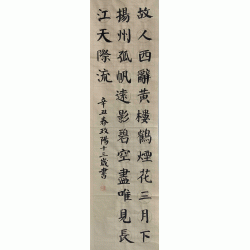 故人西辭黃樓鶴煙花三月下
揚州孤帆遠影碧空盡唯見長
江天際流
辛丑春玫陽十三歲書